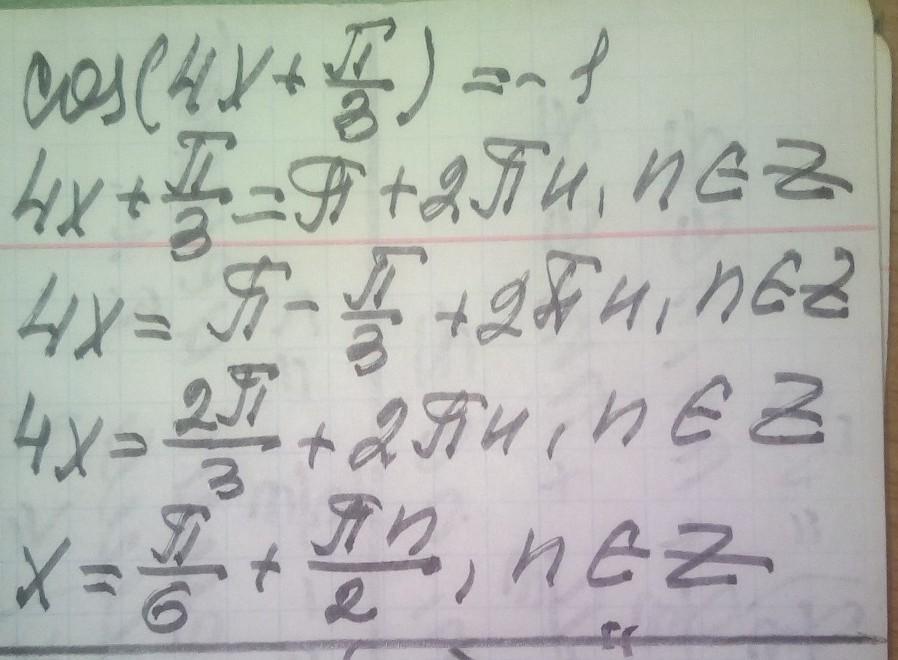 cos(4x + π/3) = -1
4x + π/3 = π + 2πn, n ∈ Z
4x = π - π/3 + 2πn, n ∈ Z
4x = 2π/3 + 2πn, n ∈ Z
x = π/6 + πn/2, n ∈ Z